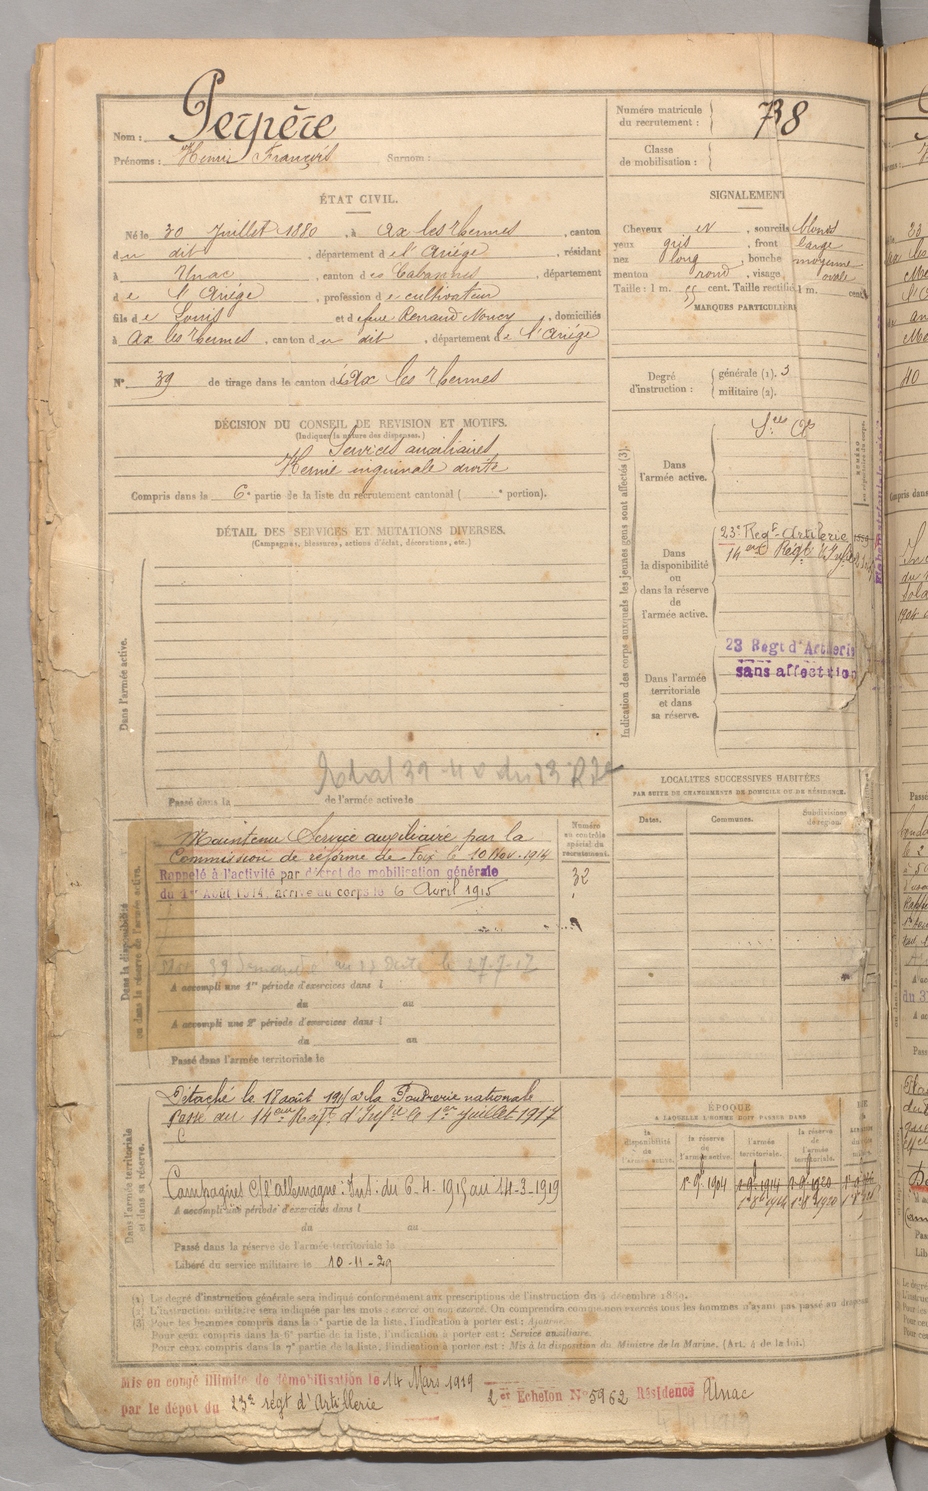 Nom : Perpère
Prénoms : Henri François Surnom :
ÉTAT CIVIL.
Né le 30 Juillet 1880, à Ax les Thermes, canton
du dit, département de l'Ariége, résidant
à Unac, canton des Cabannes, département
de l'Ariége, profession de cultivateur
fils de Louis et de feue Renaud Noncy, domiciliés
à Ax les Thermes, canton du dit, département de l'Ariége
N° 39 de tirage dans le canton d Ax les Thermes
DÉCISION DU CONSEIL DE REVISION ET MOTIFS.
(Indiquer la nature des dispenses.)
Services auxiliaires
Hernie inguinale droite
Compris dans la 6e partie de la liste du recrutement cantonal ( e portion).
DÉTAIL DES SERVICES ET MUTATIONS DIVERSES.
(Campagnes, blessures, actions d'éclat, décorations, etc.)
Dans l'armée active.
Passé dans la de l'armée active le
Dans la disponibilité
ou dans la réserve de l'armée active.
Maintenu Service auxiliaire par la
Commission de réforme de Foix le 10 Nov. 1914
Rappelé à l'activité par décret de mobilisation générale
du 1er Août 1914, arrivé au corps le 6 Avril 1915
A accompli une 1re période d'exercices dans l
du au
A accompli une 2e période d'exercices dans l
du au
Passé dans l'armée territoriale le
Numéro
au contrôle
spécial du
recrutement.
32
Dans l'armée territoriale
et dans sa réserve.
Détaché le 18 août à la Poudrerie nationale
Passé au 14eme Regt d'Infie le 1er Juillet 1917
Campagnes C/ l'allemagne : Int. du 6-4-1915 au 14-3-1919
A accompli une période d'exercices dans l
du au
Passé dans la réserve de l'armée territoriale le
Libéré du service militaire le 10-11-29
Numéro matricule
du recrutement : 738
Classe
de mobilisation :
SIGNALEMENT
Cheveux et, sourcils blonds
yeux gris, front large
nez long, bouche moyenne
menton rond, visage ovale
Taille : 1 m. 55 cent. Taille rectifiée 1 m. cent.
MARQUES PARTICULIÈR
Degré
d'instruction :
générale (1). 3
militaire (2).
Indication des corps auxquels les jeunes gens sont affectés (3).
Dans
l'armée active.
Dans
la disponibilité
ou
dans la réserve
de
l'armée active.
23e Regt Artillerie
14 eme Regt
Dans l'armée
territoriale
et dans
sa réserve.
23 Regt d'Artillerie
sans affectation
LOCALITÉS SUCCESSIVES HABITÉES
PAR SUITE DE CHANGEMENTS DE DOMICILE OU DE RÉSIDENCE.
Dates. Communes. Subdivisions
de région.
ÉPOQUE
A LAQUELLE L'HOMME DOIT PASSER DANS
la
disponibilité
de
l'armée active.
la réserve
de
l'armée active.
l'armée
territoriale.
la réserve
de
l'armée
territoriale.
1-9-1904
(1) Le degré d'instruction générale sera indiqué conformément aux prescriptions de l'instruction du 4 décembre 1889.
(2) L'instruction militaire sera indiquée par les mots : exercé ou non exercé. On comprendra comme non exercés tous les hommes n'ayant pas passé au drapeau
(3) Pour les hommes compris dans la 5e partie de la liste, l'indication à porter est : Ajourné.
Pour ceux compris dans la 6e partie de la liste, l'indication à porter est : Service auxiliaire.
Pour ceux compris dans la 7e partie de la liste, l'indication à porter est : Mis à la disposition du Ministre de la Marine. (Art. 4 de la loi.)
Mis en congé illimité de démobilisation le 14 Mars 1919 2es Echelon N° 5962 Résidence Unac
par le dépôt du 23e régt d'Artillerie